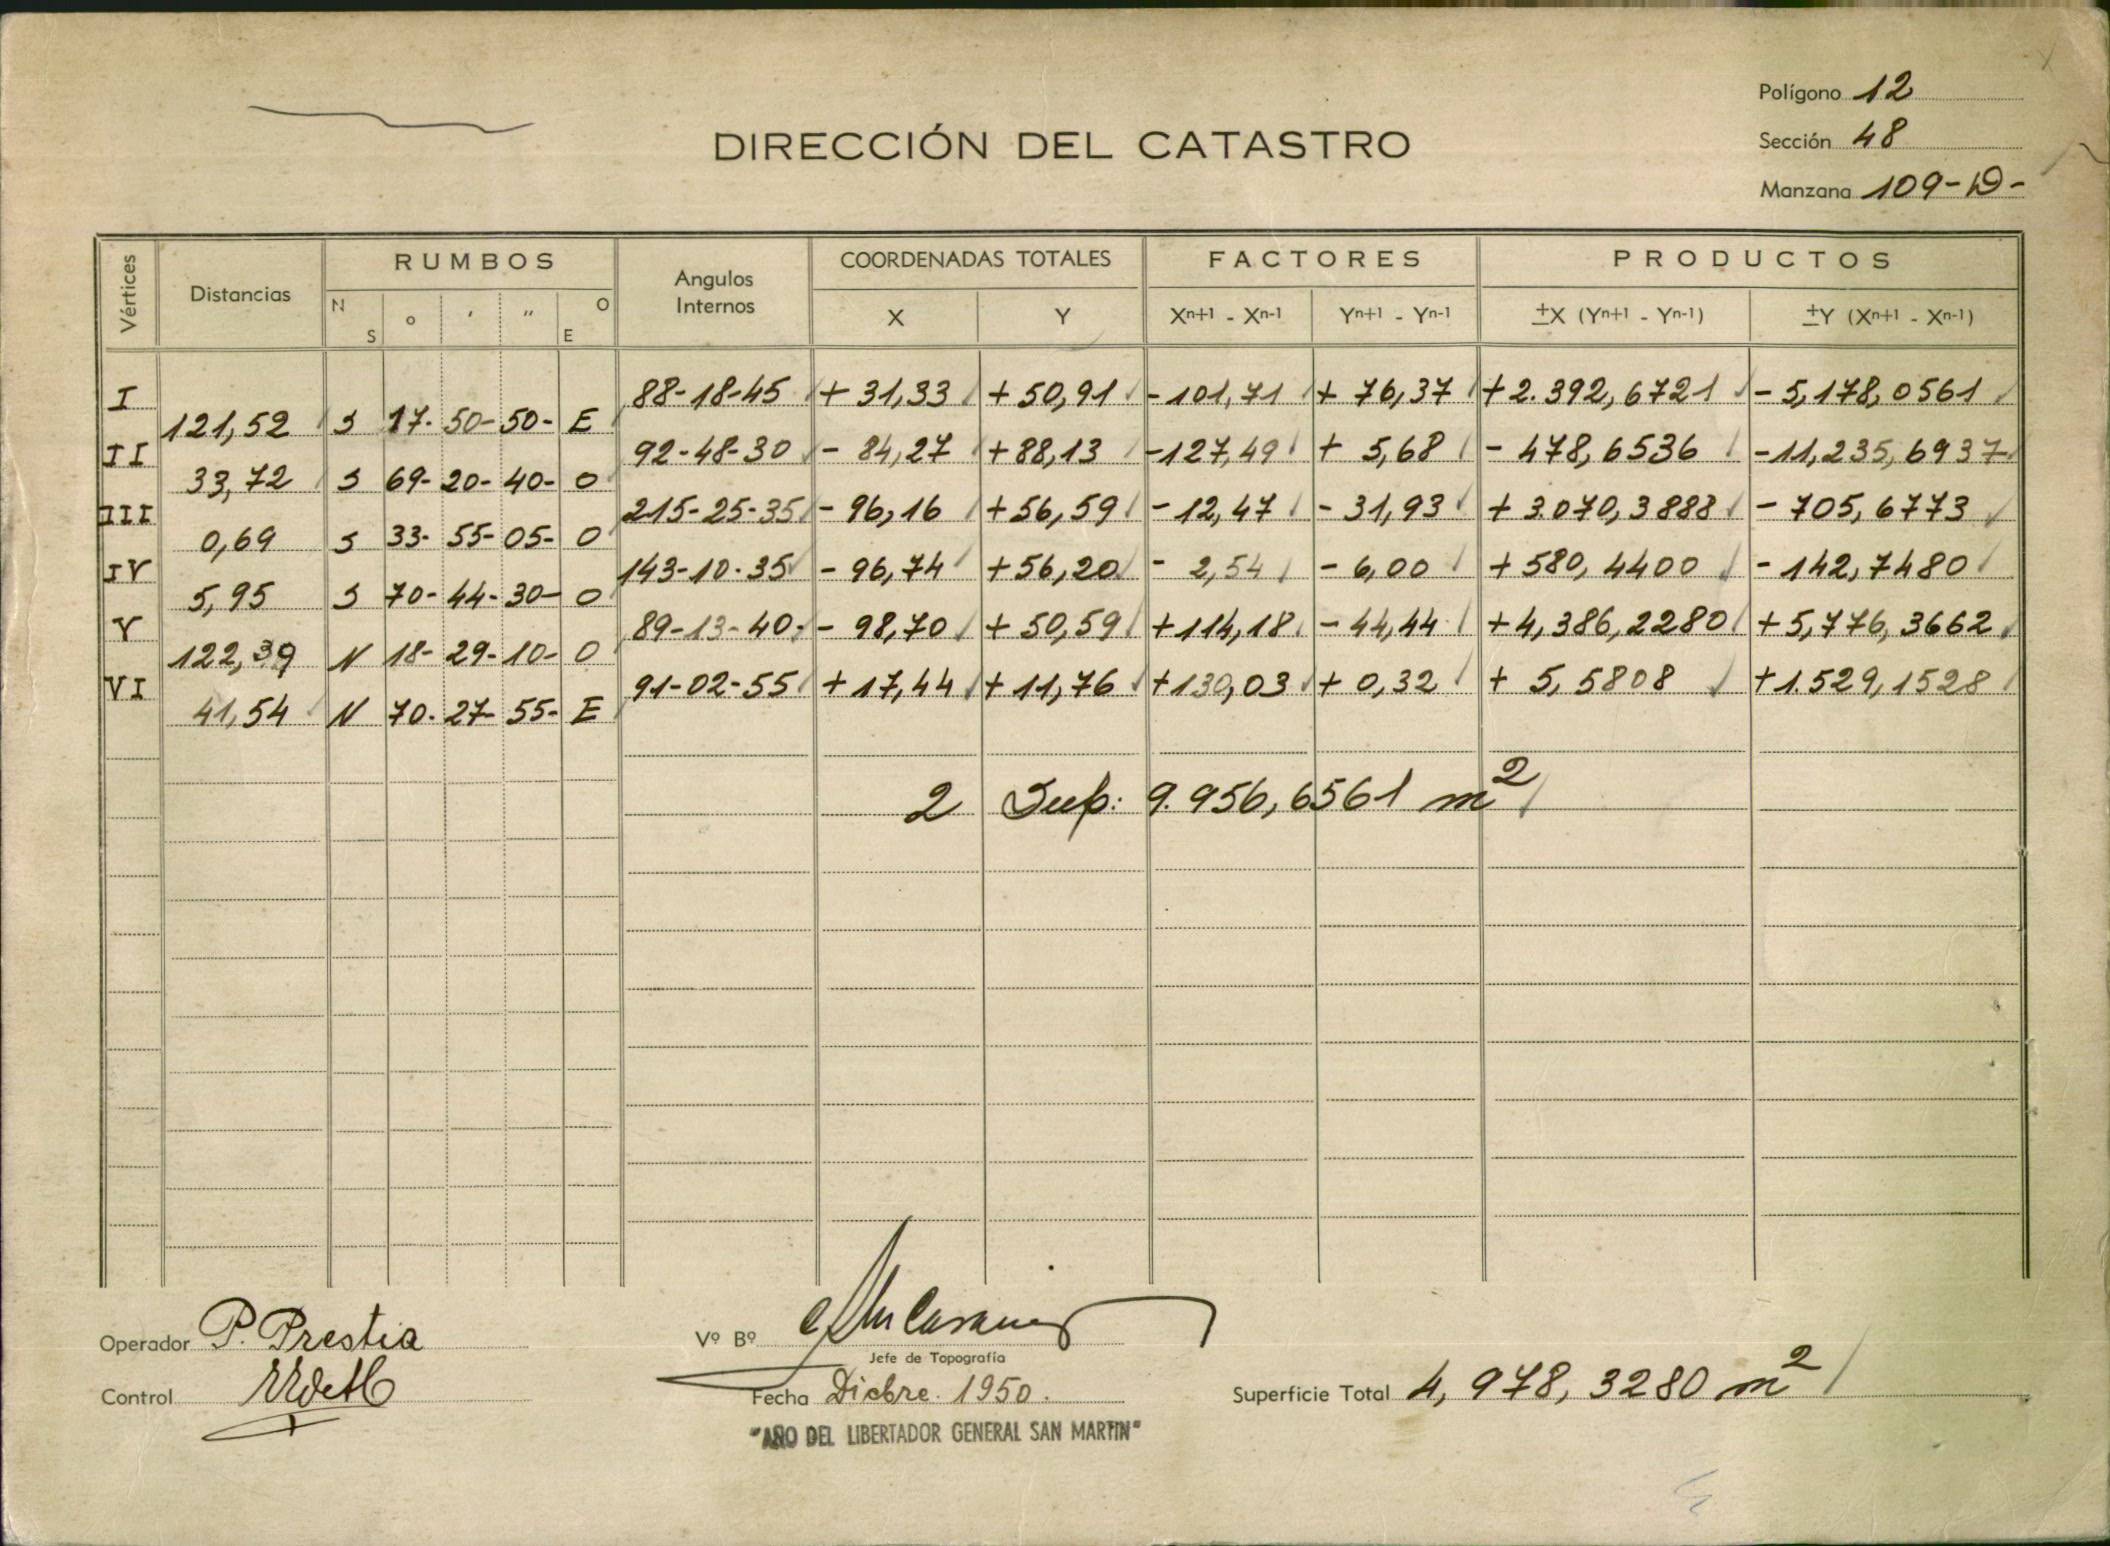 Polígono 12
DIRECCIÓN DEL CATASTRO
Sección 48
Manzana 109-D-
Vértices Distancias RUMBOS Angulos Internos COORDENADAS TOTALES FACTORES PRODUCTOS
N S ° ' " O E X Y Xn+1 - Xn-1 Yn+1 - Yn-1 ±X (Yn+1 - Yn-1) ±Y (Xn+1 - Xn-1)
I 88-18-45 + 31,33 + 50,91 - 101,71 + 76,37 + 2.392,6721 - 5,178,0561
121,52 S 17- 50- 50- E
II 92-48-30 - 84,27 + 88,13 - 127,49 + 5,68 - 478,6536 - 11,235,6937
33,72 S 69- 20- 40- O
III 215-25-35 - 96,16 + 56,59 - 12,47 - 31,93 + 3.070,3888 - 705,6773
0,69 S 33- 55- 05- O
IV 143-10-35 - 96,74 + 56,20 - 2,54 - 6,00 + 580,4400 - 142,7480
5,95 S 70- 44- 30- O
V 89-13-40- - 98,70 + 50,59 + 114,18 - 44,44 + 4,386,2280 + 5,776,3662
122,39 N 18- 29- 10- O
VI 91-02-55 + 17,44 + 11,76 + 130,03 + 0,32 + 5,5808 + 1.529,1528
41,54 N 70- 27- 55- E
2 Sup: 9.956,6561 m²
Operador P. Prestia
Vº Bº
Jefe de Topografía
Control
Fecha Dicbre. 1950.
Superficie Total 4,978,3280 m²
"AÑO DEL LIBERTADOR GENERAL SAN MARTIN"